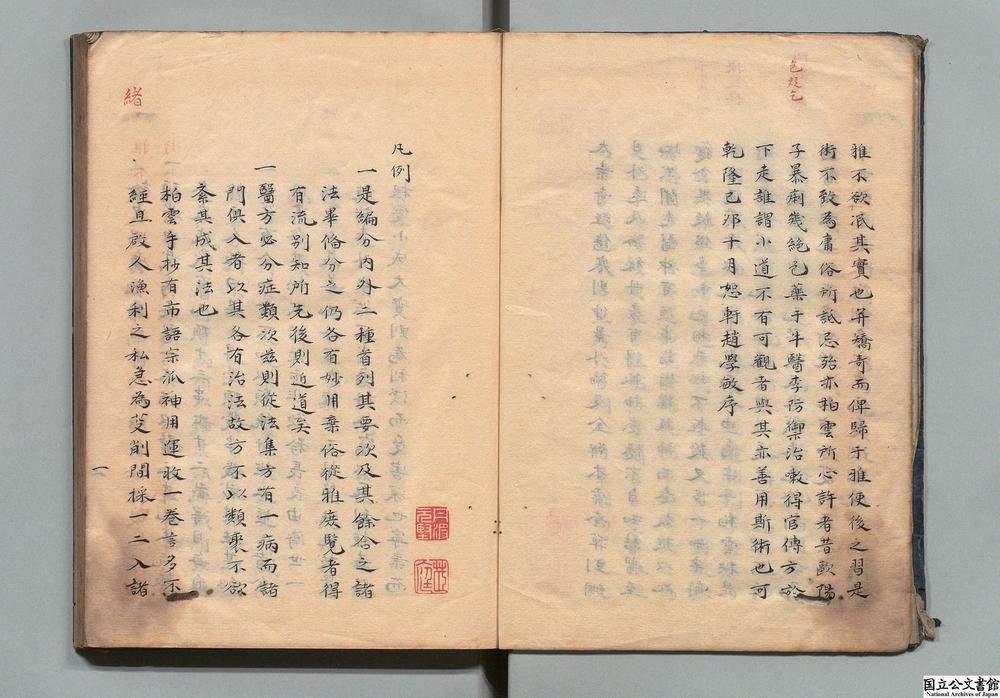 雅不欲泯其實也并矯奇而俾歸于雅使後之習是
術不致為庸俗所詆忌殆亦柏雲所心許者昔歐陽
子暴痢幾絕乞藥于牛醫李防禦治嗽得官傳方於
下走誰謂小道不有可觀者與其亦善用斯術也可
乾隆己卯十月恕軒趙學敏序
凡例
一是編分内外二種首列其要次及其餘拾之諸
法畢俻分之仍各有妙用棄俗從雅庶覽者得
有流別知所先後則近道矣
一醫方必分症類次兹則從法集方有一病而諸
門俱入者以其各有治法故方不以類聚不欲
紊其成其法也
柏雲手抄有市語宗派神用運收一卷言多不
經且啟人漁利之私急為芟削間採一二入諸
一
緒
国立公文書館
National Archives of Japan